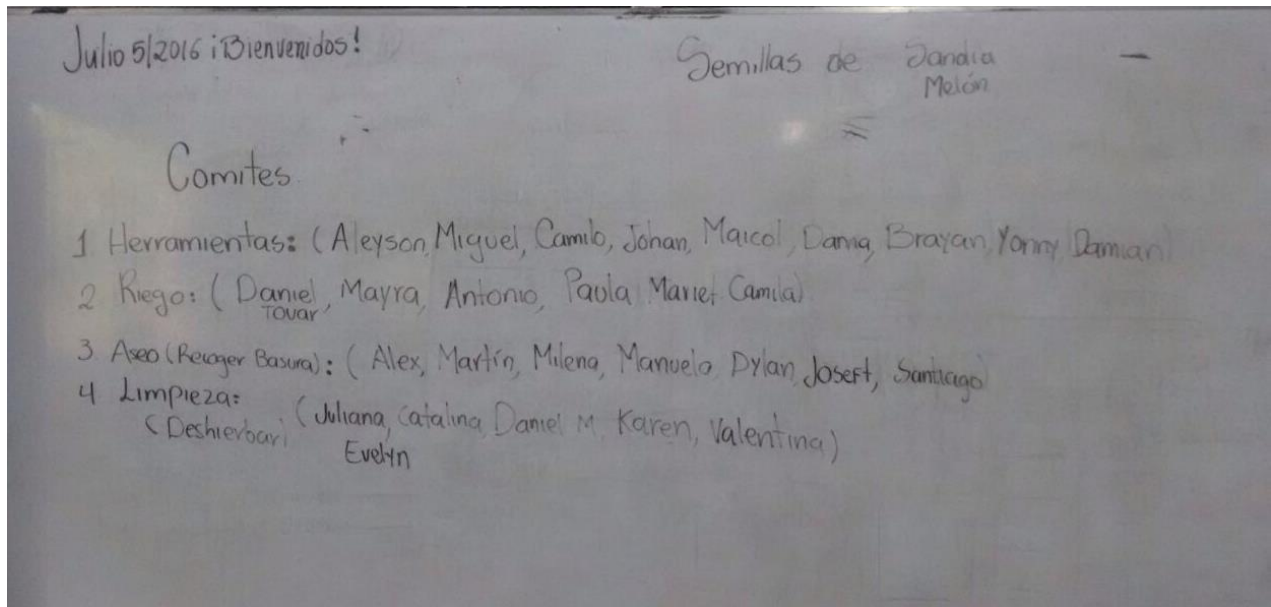 Julio 5/2016 ¡Bienvenidos!
Semillas de Sandia
Melón
Comites
1 Herramientas: (Aleyson, Miguel, Camilo, Johan, Maicol, Danna, Brayan, Yonny Damian)
2 Riego: (Daniel, Mayra, Antonio, Paola Mariet Camila)
Tovar
3 Aseo (Recoger Basura): (Alex, Martín, Milena, Manuela Dylan, Joseft, Santiago)
4 Limpieza:
(Deshierbar) (Juliana, Catalina, Daniel M, Karen, Valentina)
Evelyn